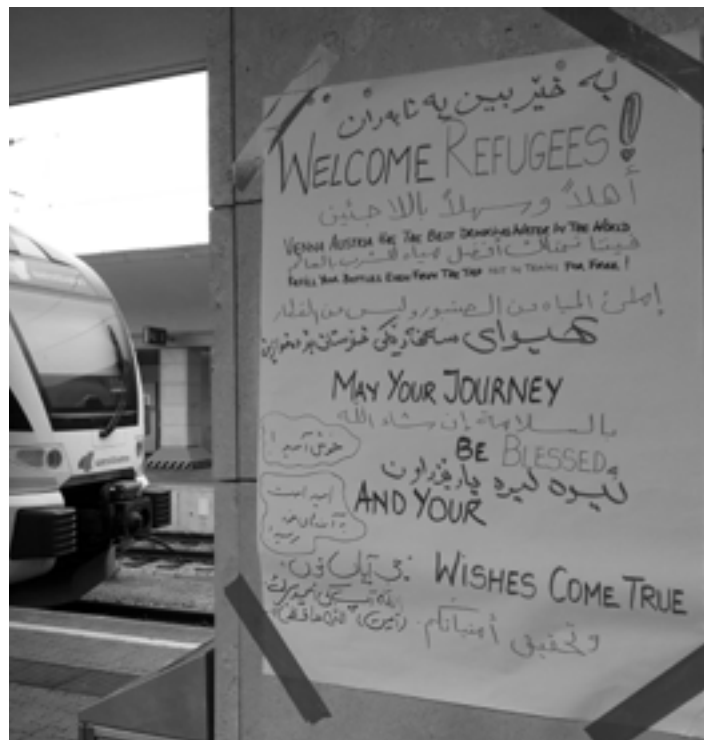 بە خێر بین پە نابەران
WELCOME REFUGEES!
أهلاً وسهلاً باللاجئين
VIENNA AUSTRIA HAS THE BEST DRINKING WATER IN THE WORLD
فيينا تمتلك أفضل مياه للشرب بالعالم
REFILL YOUR BOTTLES EVEN FROM THE TAP NOT IN TRAINS FOR FREE!
إملئ المياه من الصنبور وليس من القطار
هیوای سەفەرێکی خۆشتان بۆ دەخوازین
MAY YOUR JOURNEY
بالسلامة إن شاء الله
خوش آمدید!
BE BLESSED,
امید است
AND YOUR
WISHES COME TRUE
وتحقيق أمنياتكم